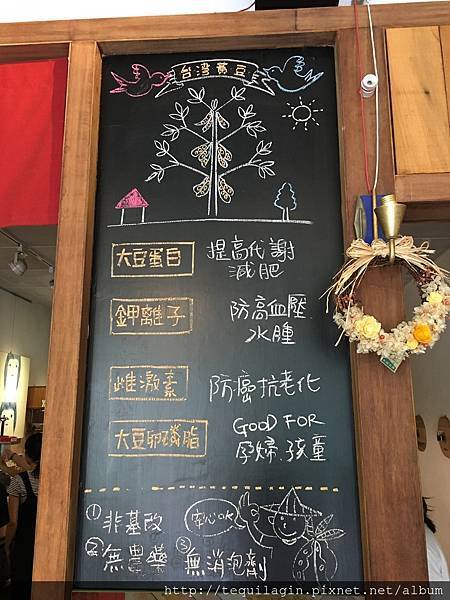 台湾黃豆
大豆蛋白
提高代謝
減肥
鉀離子
防高血壓.
水腫
雌激素
防癌抗老化
大豆卵磷脂
GOOD FOR
孕婦.孩童
①非基改
安心OK
②無農藥
③無消泡劑
http://tequilagin.pixnet.net/album